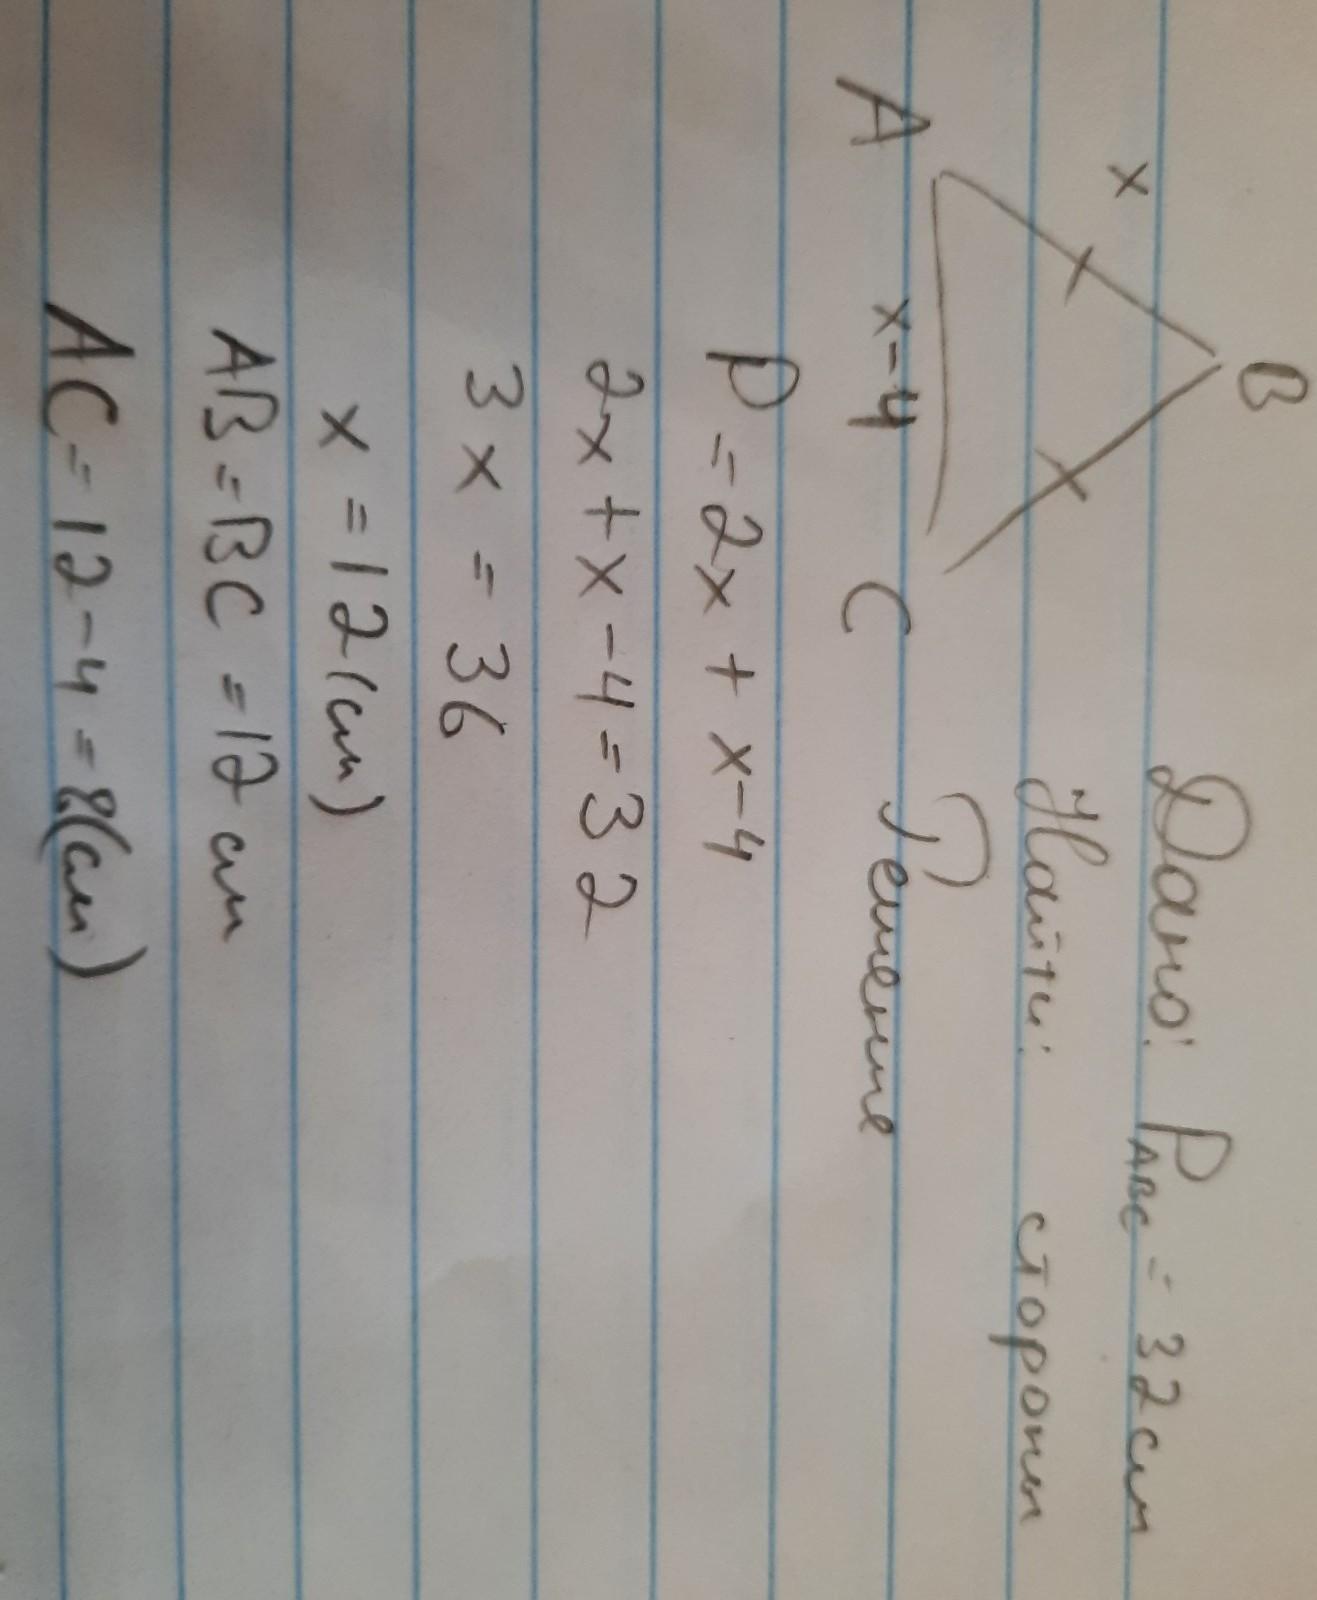 B
x
A
x-4
C
Дано: P ABC = 32 см
Найти: стороны
Решение
P = 2x + x-4
2x + x - 4 = 32
3x = 36
x = 12 (см)
AB = BC = 12 см
AC = 12 - 4 = 8 (см)